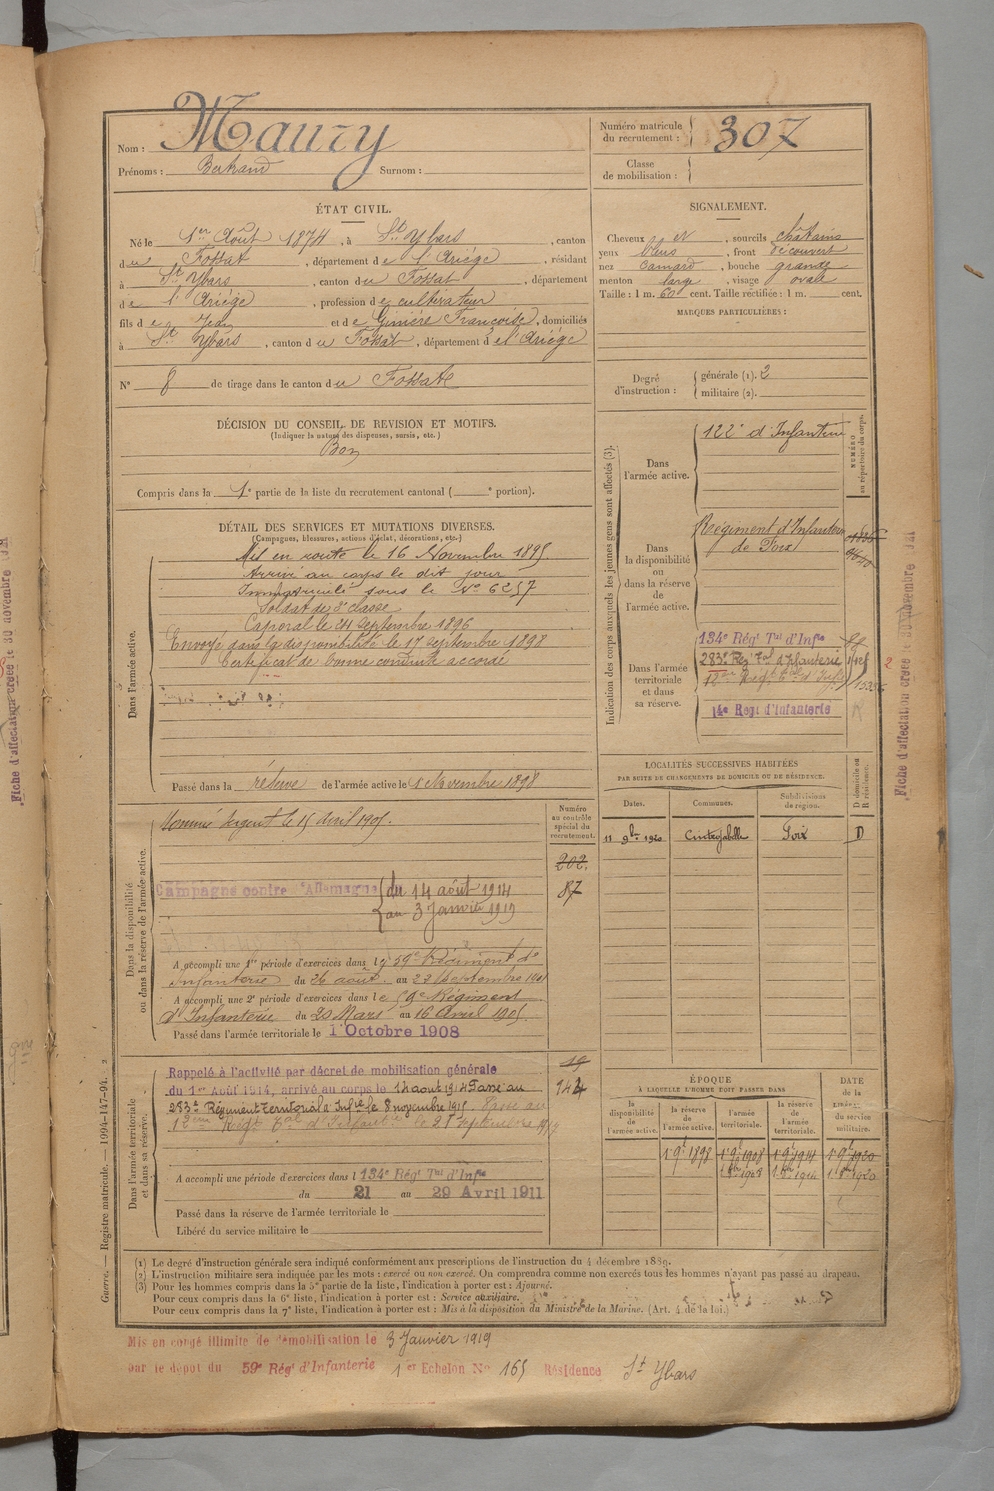 Nom : Maury
Prénoms : Bertrand Surnom :
Numéro matricule du recrutement : 307
Classe de mobilisation :
ÉTAT CIVIL.
Né le 1er Août 1874, à St Ybars, canton
du Fossat, département de l'Ariège, résidant
à St Ybars, canton du Fossat, département
de l'Ariège, profession de cultivateur
fils de Jean et de Françoise, domiciliés
à St Ybars, canton du Fossat, département de l'Ariège
N° 8 de tirage dans le canton du Fossat
DÉCISION DU CONSEIL DE REVISION ET MOTIFS.
(Indiquer la nature des dispenses, sursis, etc.)
Bon
Compris dans la 1e partie de la liste du recrutement cantonal ( e portion).
SIGNALEMENT.
Cheveux et, sourcils châtains
yeux bleus, front découvert
nez camard, bouche grande
menton large, visage ovale
Taille : 1 m. 60 cent. Taille rectifiée : 1 m. cent.
MARQUES PARTICULIÈRES :
Degré d'instruction :
générale (1). 2
militaire (2).
DÉTAIL DES SERVICES ET MUTATIONS DIVERSES.
(Campagnes, blessures, actions d'éclat, décorations, etc.)
Dans l'armée active.
Mis en route le 16 Novembre 1895
Arrivé au corps le dit jour
Immatriculé sous le N° 6257
Soldat de 2e classe
Caporal le 21 Septembre 1896
Envoyé dans la disponibilité le 17 septembre 1898
Certificat de bonne conduite accordé
Passé dans la réserve de l'armée active le 1 Novembre 1898
Indication des corps auxquels les jeunes gens sont affectés (3).
NUMÉRO au répertoire du corps.
Dans l'armée active.
122e d'Infanterie
Dans la disponibilité ou dans la réserve de l'armée active.
Régiment d'Infanterie
de Foix
Dans l'armée territoriale et dans sa réserve.
134e Régt Tal d'Infie
283e Rég. Tal d'Infanterie
12e Régt Tal d'Infie
14e Régt d'Infanterie
LOCALITÉS SUCCESSIVES HABITÉES
PAR SUITE DE CHANGEMENTS DE DOMICILE OU DE RÉSIDENCE.
D domicile ou R résidence.
Dates. Communes. Subdivisions de région.
11 9bre 1920 Cintegabelle Foix D
Dans la disponibilité ou dans la réserve de l'armée active.
Numéro au contrôle spécial du recrutement.
Nommé sergent le 15 Avril 1905.
202.
87
Campagne contre l'Allemagne du 14 août 1914
au 3 Janvier 1919
A accompli une 1re période d'exercices dans le 59e Régiment d'
Infanterie du 26 août au 22 Septembre 1901
A accompli une 2e période d'exercices dans le 59e Régiment
d'Infanterie du 20 Mars au 16 Avril 1905.
Passé dans l'armée territoriale le 1 Octobre 1908
Dans l'armée territoriale et dans sa réserve.
19
Rappelé à l'activité par décret de mobilisation générale
du 1er Août 1914, arrivé au corps le 14 aout 1914 Passé au
283e Régiment Territorial d'Infie le 8 novembre 1915. Passé au
12ème Régt Tal d'Infanterie le 25 Septembre 1917
A accompli une période d'exercices dans l 134e Régt Tal d'Infie
du 21 au 29 Avril 1911
Passé dans la réserve de l'armée territoriale le
Libéré du service militaire le
ÉPOQUE
À LAQUELLE L'HOMME DOIT PASSER DANS
DATE de la du service militaire.
la disponibilité de l'armée active. la réserve de l'armée active. l'armée territoriale. la réserve de l'armée territoriale.
1 9bre 1898 1 9bre 1908 1 9bre 1914 1 9bre 1920
1 8bre 1908 1 8bre 1914 1 8bre 1920
(1) Le degré d'instruction générale sera indiqué conformément aux prescriptions de l'instruction du 4 décembre 1889.
(2) L'instruction militaire sera indiquée par les mots : exercé ou non exercé. On comprendra comme non exercés tous les hommes n'ayant pas passé au drapeau.
(3) Pour les hommes compris dans la 5e partie de la liste, l'indication à porter est : Ajourné.
Pour ceux compris dans la 6e liste, l'indication à porter est : Service auxiliaire.
Pour ceux compris dans la 7e liste, l'indication à porter est : Mis à la disposition du Ministre de la Marine. (Art. 4 de la loi.)
Mis en congé illimité de démobilisation le 3 Janvier 1919
par le dépôt du 59e Régt d'Infanterie 1er Echelon N° 165 Résidence St Ybars
Guerre. — Registre matricule. — 1094-147-94.
Fiche d'affectation créée le 30 novembre
Fiche d'affectation créée le 30 novembre